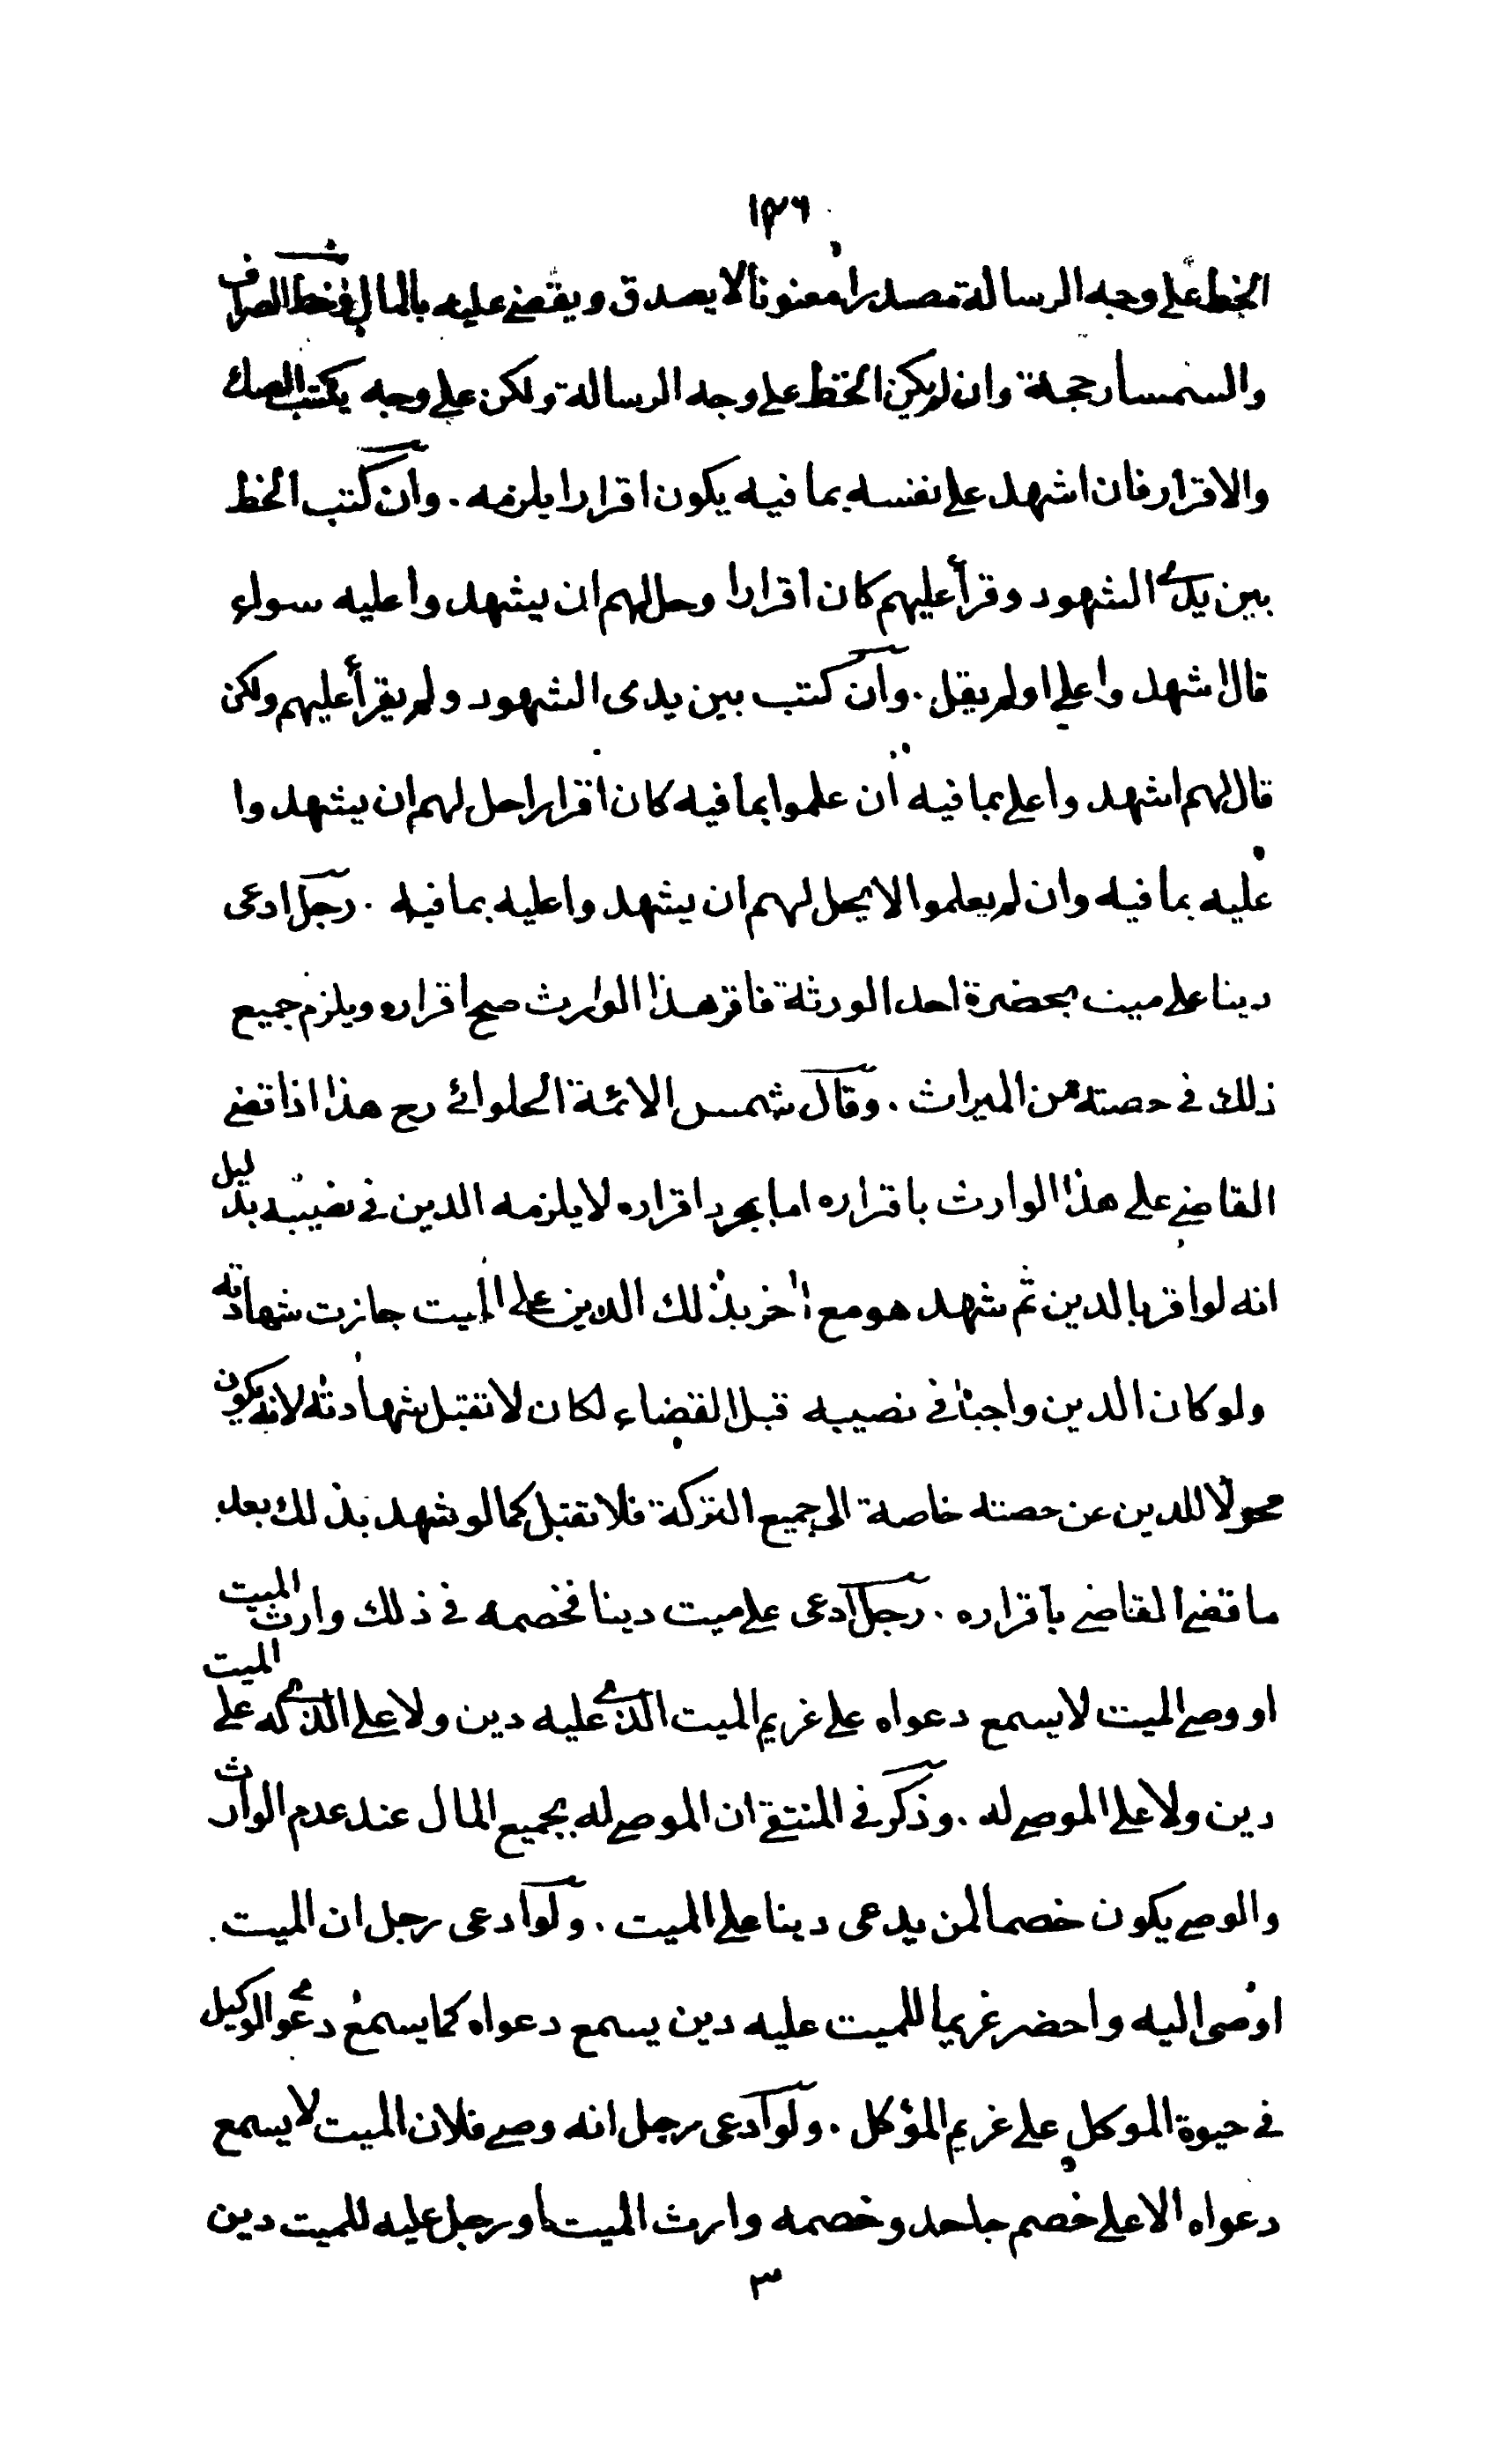 ١٣٦
الخط على وجه الرسالة مصدرا معنونا لا يصدق ويقضى عليه بالمال وخط الصراف
والسمسار حجة وان لم يكن الخط على وجه الرسالة ولكن على وجه يكتب الصك
والاقرار فان اشهد على نفسه بما فيه يكون اقرارا يلزمه . وان كتب الخط
بين يدي الشهود وقرأ عليهم كان اقرارا وحل لهم ان يشهدوا عليه سواء
قال اشهدوا علي او لم يقل . وان كتب بين يدى الشهود ولم يقرأ عليهم ولكن
قال لهم اشهدوا علي بما فيه ان علموا بما فيه كان اقرارا حل لهم ان يشهدوا
عليه بما فيه وان لم يعلموا لا يحل لهم ان يشهدوا عليه بما فيه . رجل ادعى
دينا على ميت بحضرة احد الورثة فاقر هذا الوارث صح اقراره ويلزم جميع
ذلك في حصته من الميراث . وقال شمس الائمة الحلوائي رح هذا اذا قضى
القاضي على هذا الوارث باقراره اما بمجرد اقراره لا يلزمه الدين في نصيبه بدليل
انه لو اقر بالدين ثم شهد هو مع اخر بذلك الدين على الميت جازت شهادته
ولو كان الدين واجبا في نصيبه قبل القضاء لكان لا تقبل شهادته لانه يكون
محولا للدين عن حصته خاصة الى جميع التركة فلا تقبل كما لو شهد بذلك بعد
ما قضى القاضي باقراره . رجل ادعى على ميت دينا فخصمه في ذلك وارث الميت
او وصي الميت لا يسمع دعواه على غريم الميت الذي عليه دين ولا على الذي له على الميت
دين ولا على الموصى له . وذكر في المنتقى ان الموصى له بجميع المال عند عدم الوارث
والوصي يكون خصما لمن يدعى دينا على الميت . ولو ادعى رجل ان الميت
اوصى اليه واحضر غريما للميت عليه دين يسمع دعواه كما يسمع دعوى الوكيل
في حيوة الموكل على غريم المؤكل . ولو ادعى رجل انه وصي فلان الميت لا يسمع
دعواه الا على خصم جاحد وخصمه وارث الميت او رجل عليه للميت دين
٣